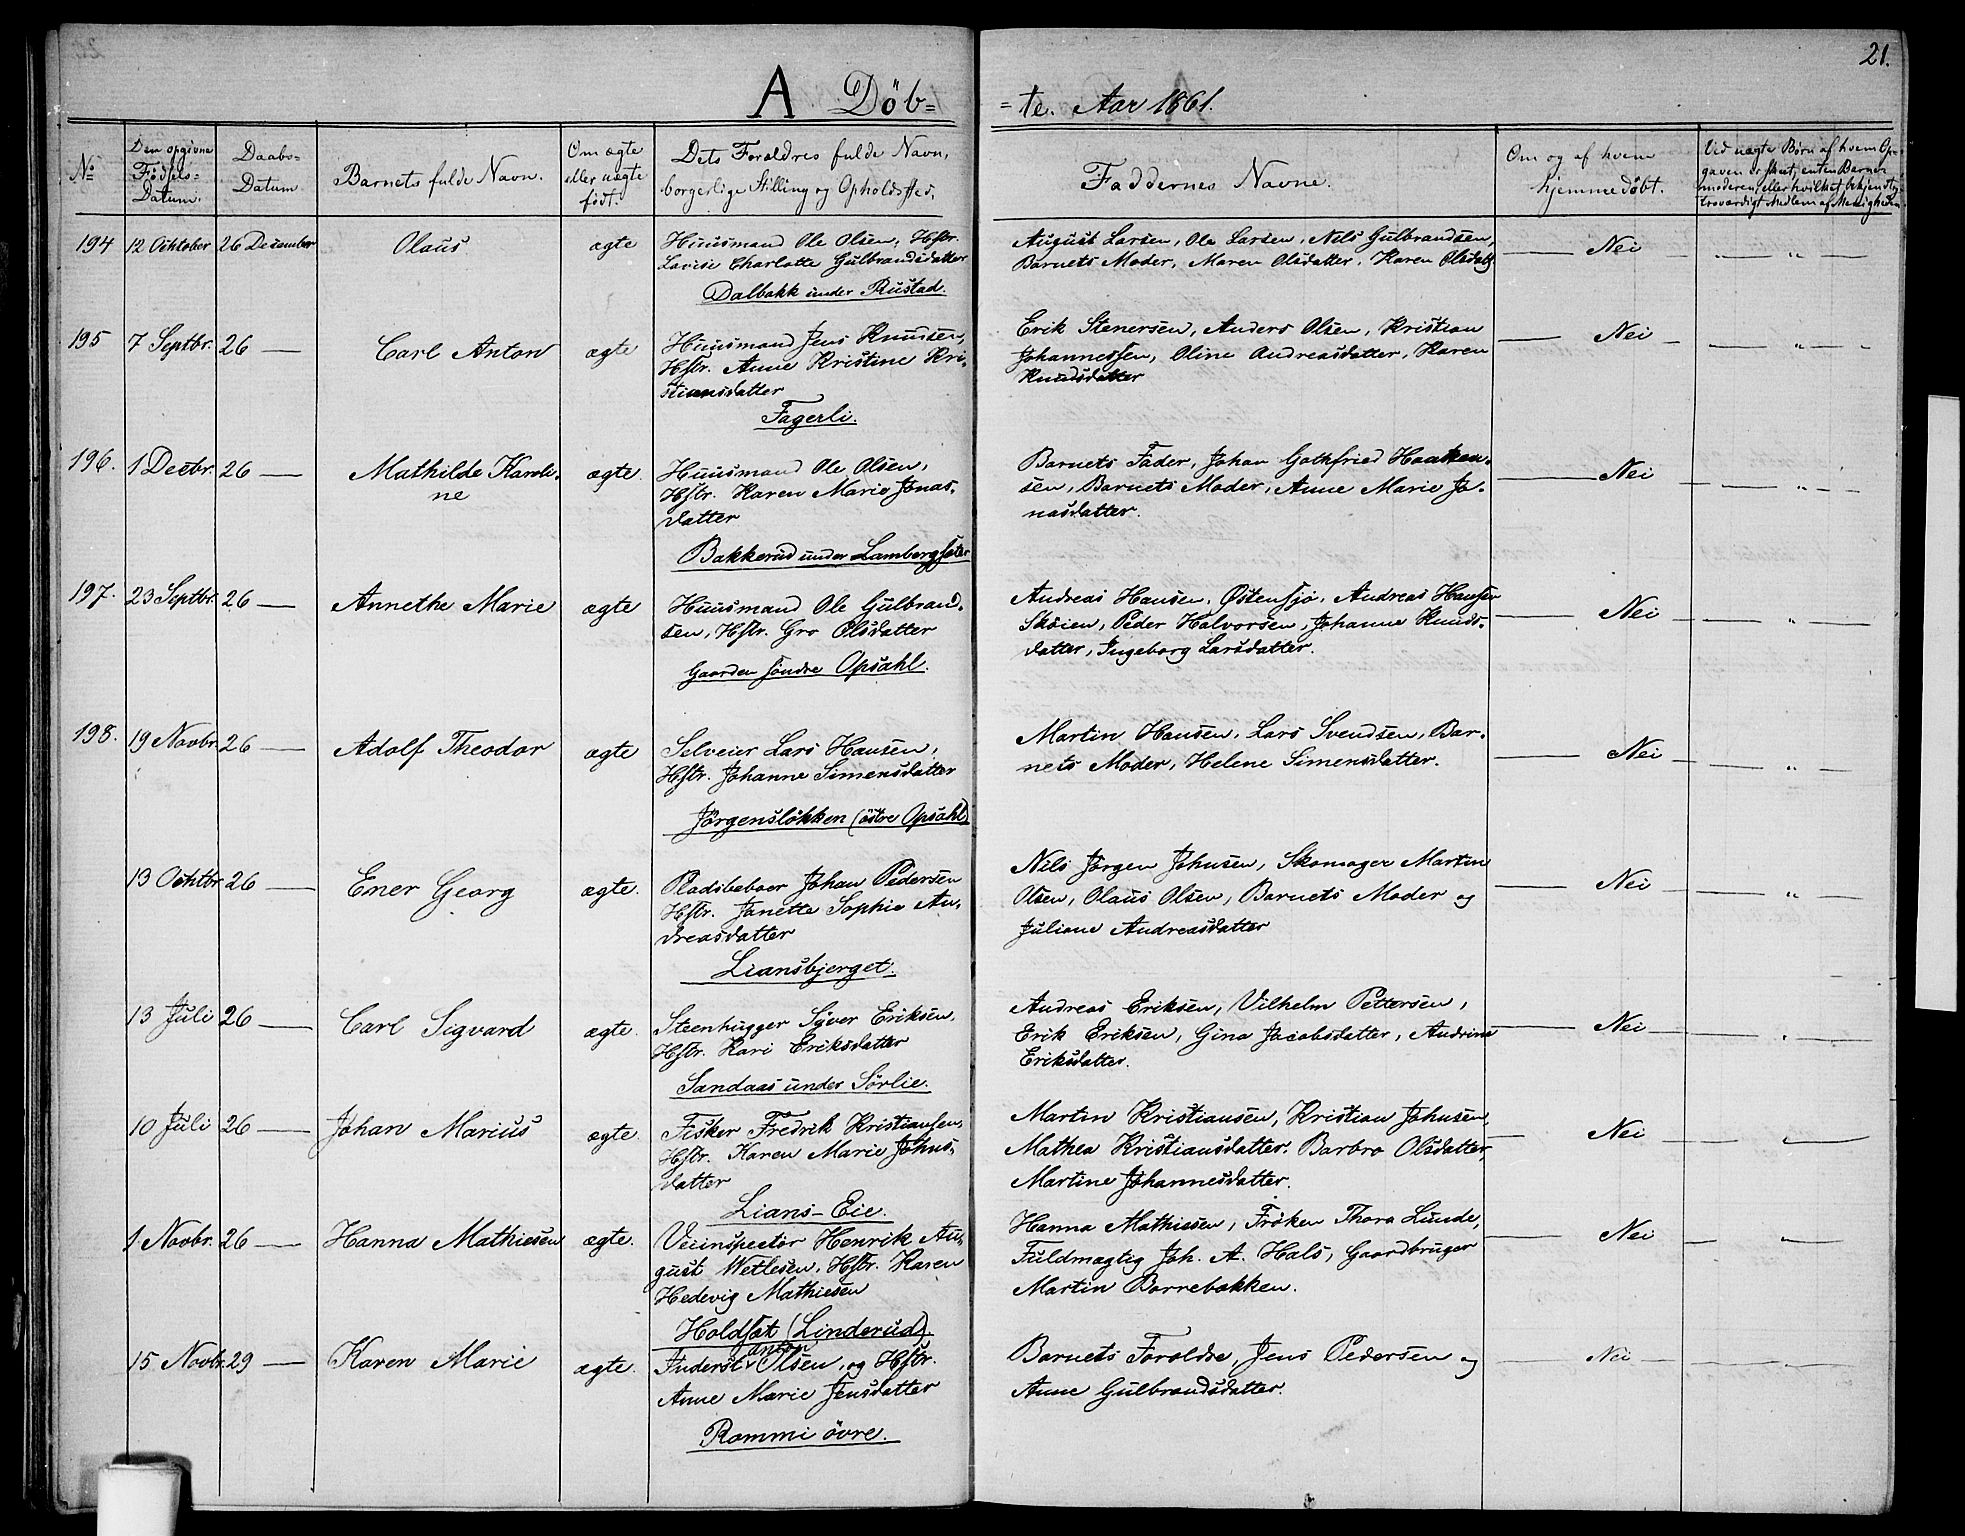 21.
A Döb=
=te. Aar 1861.
No
Den opgivne
Födsels-
Datum.
Daabs-
Datum
Barnets fulde Navn.
Om ægte
eller uægte
födt.
Dets Foraldres fulde Navn,
borgerlige Stilling og Opholdssted.
Faddernes Navne.
Om og af hvem
hjemmedöbt.
Ved uægte Börn af hvem Op-
gaven er skeet, enten Barne-
moderen, eller hvilket bekjendt og
troværdigt Medlem af Menigheden.
194 12 Ochtober 26 December Olaus ægte
Huusmand Ole Olsen, Hstr.
Lovise Charlotte Gulbrandsdatter
Dalbakk under Rustad.
August Larsen, Ole Larsen, Nils Gulbrandsen,
Barnets Moder, Maren Olsdatter, Karen Olsdatt
Nei — " —
195 7 Septbr. 26 — Carl Anton ægte
Huusmand Jens Knudsen,
Hstr. Anne Kristine Kri-
stiansdatter
Fagerli.
Erik Stenersen, Anders Olsen, Kristian
Johannessen, Oline Andreasdatter, Karen
Knudsdatter
Nei — " —
196. 1 Decbr. 26 — Mathilde Karoli-
ne
ægte.
Huusmand Ole Olsen,
Hstr. Karen Marie Jonas-
datter
Bakkerud under Lambergsæter
Barnets Fader, Johan Gothfried Haaken-
sen, Barnets Moder, Anne Marie Jo-
nasdatter.
Nei — " —
197. 23 Septbr. 26 — Annethe Marie ægte
Huusmand Ole Gulbrand-
sen, Hstr. Gro Olsdatter
Gaarden söndre Opsahl.
Andreas Hansen, Østensjö, Andreas Hansen
Sköien, Peder Halvorsen, Johanne Knuds-
datter, Ingeborg Larsdatter.
Nei — " —
198. 19 Novbr. 26 — Adolf Theodor ægte
Selveier Lars Hansen,
Hstr. Johanne Simensdatter
Jörgenslökken (östre Opsahl)
Martin Hansen, Lars Svendsen, Bar-
nets Moder, Helene Simensdatter.
Nei — " —
13 Ochtbr. 26 — Ener Georg ægte.
Pladsbeboer Johan Pedersen
Hstr. Janette Sophie An-
dreasdatter
Liansbjerget.
Nils Jörgen Johnsen, Skomager Martin
Olsen, Olaus Olsen, Barnets Moder og
Juliane Andreasdatter
Nei — " —
13 Juli 26 — Carl Sigvard ægte.
Steenhugger Syver Eriksen,
Hstr. Kari Eriksdatter
Sandaas under Sörlie.
Andreas Eriksen, Vilhelm Pettersen,
Erik Eriksen, Gina Jacobsdatter, Andrine
Eriksdatter.
Nei
10 Juli 26 — Johan Marius ægte.
Fisker Fredrik Kristiansen,
Hstr. Karen Marie Johns-
datter
Lians-Eie.
Martin Kristiansen, Kristian Johnsen,
Mathea Kristiansdatter, Barbro Olsdatter,
Martine Johannesdatter.
Nei
1 Novbr. 26 — Hanna Mathiesen ægte.
Veiinspector Henrik Au-
gust Wetlesen, Hstr. Karen
Hedevig Mathiesen
Holdsæt (Linderud).
Hanna Mathiesen, Fröken Thora Lunde,
Fuldmægtig Joh. A. Hals, Gaardbruger
Martin Borrebakken.
Nei
15 Novbr. 29 — Karen Marie ægte.
Anton
Anders Olsen, og Hstr.
Anne Marie Jensdatter
Rommi övre.
Barnets Foroldre, Jens Pedersen og
Anne Gulbrandsdatter.
Nei